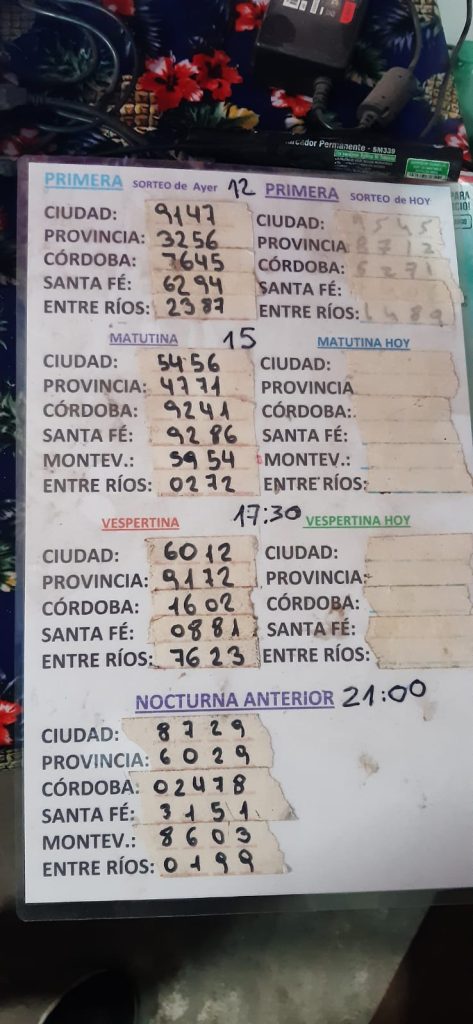 Marcador Permanente - SM339
PRIMERA SORTEO de Ayer 12 PRIMERA SORTEO de HOY
CIUDAD: 9147 CIUDAD: 9545
PROVINCIA: 3256 PROVINCIA 8712
CÓRDOBA: 7645 CÓRDOBA: 6271
SANTA FÉ: 6294 SANTA FÉ:
ENTRE RÍOS: 2387 ENTRE RÍOS: 1489
MATUTINA 15 MATUTINA HOY
CIUDAD: 5456 CIUDAD:
PROVINCIA: 4771 PROVINCIA
CÓRDOBA: 9241 CÓRDOBA:
SANTA FÉ: 9286 SANTA FÉ:
MONTEV.: 5954 MONTEV.:
ENTRE RÍOS: 0272 ENTRE RÍOS:
VESPERTINA 17:30 VESPERTINA HOY
CIUDAD: 6012 CIUDAD:
PROVINCIA: 9172 PROVINCIA:
CÓRDOBA: 1602 CÓRDOBA:
SANTA FÉ: 0881 SANTA FÉ:
ENTRE RÍOS: 7623 ENTRE RÍOS:
NOCTURNA ANTERIOR 21:00
CIUDAD: 8729
PROVINCIA: 6029
CÓRDOBA: 02478
SANTA FÉ: 3151
MONTEV.: 8603
ENTRE RÍOS: 0199